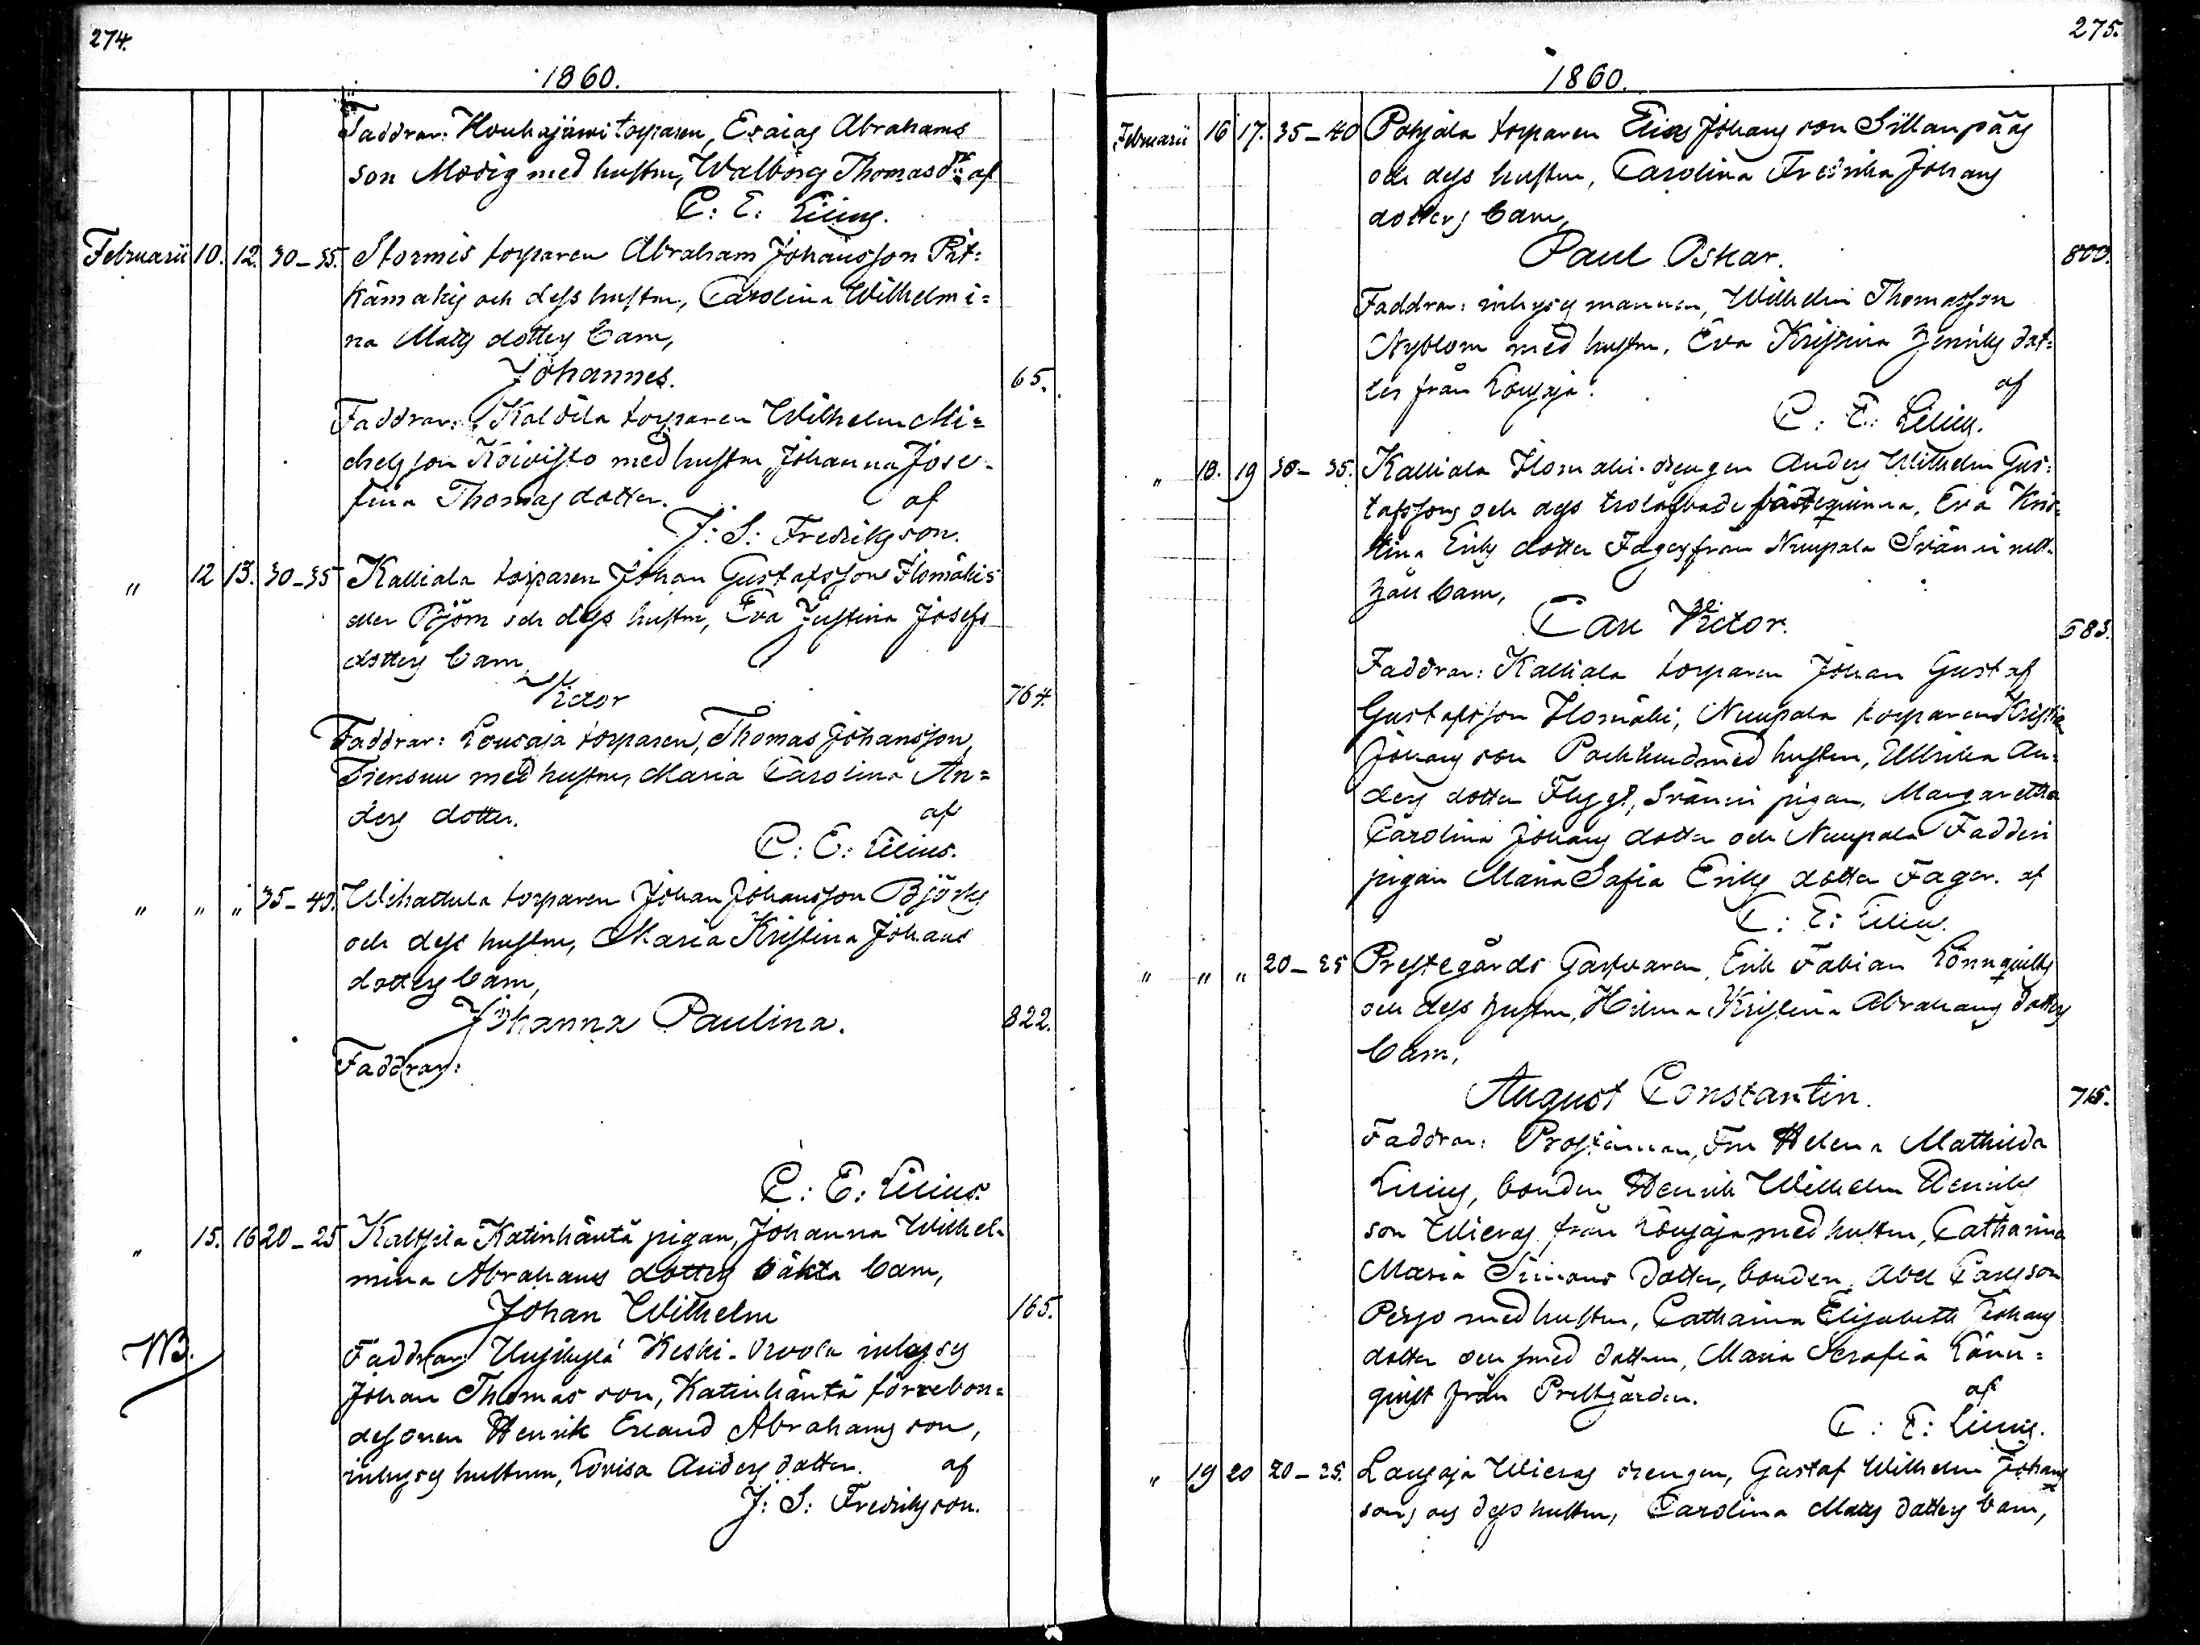 274.
1860.
Faddrar: Houhajärvi torparen, Esaias Abrahams
son Modig med hustru, Walborg Thomasdr af
C: E: Lilius.
Februarii 10. 12. 30–35. Stormis torparen Abraham Johansson Pit=
kämäkis och dess hustru, Carolina Wilhelmi=
na Matts dotters barn,
Johannes. 65.
Faddrar: Kaldila torparen Wilhelm Mi=
chelsson Koivisto med hustru, Johanna Jose-
fina Thomas dotter. af
J: S: Fredrikson.
" 12 13. 30–35 Kalliala torparen Johan Gustafsson Ilomäkis
eller Björn och dess hustru, Eva Justina Josefs
dotters barn,
Victor 764.
Faddrar: Lousaja torparen, Thomas Johansson,
Tiensuu med hustru, Maria Carolina An=
ders dotter. af
C: E: Lilius.
" " " 35–40. Wihattula torparen Johan Johansson Björks
och dess hustru, Maria Kristina Johans
dotters barn,
Johanna Paulina. 822.
Faddrar:
C: E: Lilius.
" 15. 16 20–25 Kaltsila Katinhäntä pigan, Johanna Wilhel-
mina Abrahams dotters oäkta barn,
Johan Wilhelm 165.
NB. Faddrar: Uusikylä Keski-Orvola inhyses
Johan Thomas son, Katinhäntä förrebon=
desonen Henrik Erland Abrahams son,
inhyses hustrun, Lovisa Anders dotter. af
J: S: Fredrikson.
275.
1860.
Februarii 16 17. 35–40 Pohjala torparen Elias Johans son Sillanpääs
och dess hustru, Carolina Fredrika Johans
dotters barn,
Paul Oskar. 800.
Faddrar: inhyses mannen, Wilhelm Thomasson
Nyblom med hustru, Eva Kristina Henriks dot=
ter från Lousaja. af
C: E: Lilius.
" 18. 19 30–35. Kalliala Ilomäki-drengen Anders Wilhelm Gus-
tafssons och dess trolåfvade fästeqvinna, Eva Kris-
tina Eriks dotter Fagers från Nuupala
barn,
Carl Victor. 583.
Faddrar: Kalliala torparen Johan Gustaf
Gustafsson Ilomäki, Nuupala torparen Kristian
Johans son med hustru, Ulrika An=
ders dotter Flygt, pigan, Margaretha
Carolina Johans dotter och Nuupala Fadderi
pigan Maria Sofia Eriks dotter Fager. af
C: E: Lilius.
" " " 20–25 Prestegårds Gardvaren, Erik Fabian Lönnqvists
och dess hustru, Hilma Kristina Abrahams dotters
barn,
August Constantin. 715.
Faddrar: Prostinnan, Fru Helena Mathilda
Lilius, bonden Henrik Wilhelm Henriks
son Wieras från Lousaja med hustru, Catharina
Maria Simons dotter, bonden, Abel Carlsson
Perjo med hustru, Catharina Elisabeth Johans
dotter och smed dottren, Maria Serafia Lönn=
qvist från Prestgården. af
C: E: Lilius.
" 19 20 20–25. Lausaja Wieras drengen, Gustaf Wilhelm Johans
sons och dess hustru, Carolina Matts dotters barn,